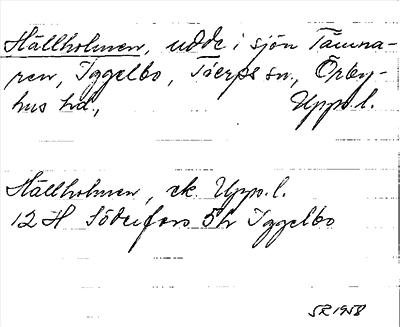 Hällholmen, udde i sjön Tämna-
ren, Iggelbo, Tierps sn., Örby-
hus hd., Upps.l.
Hällholmen, ek. Upps.l.
12 H Söderfors 5h Iggelbo
SR 1958